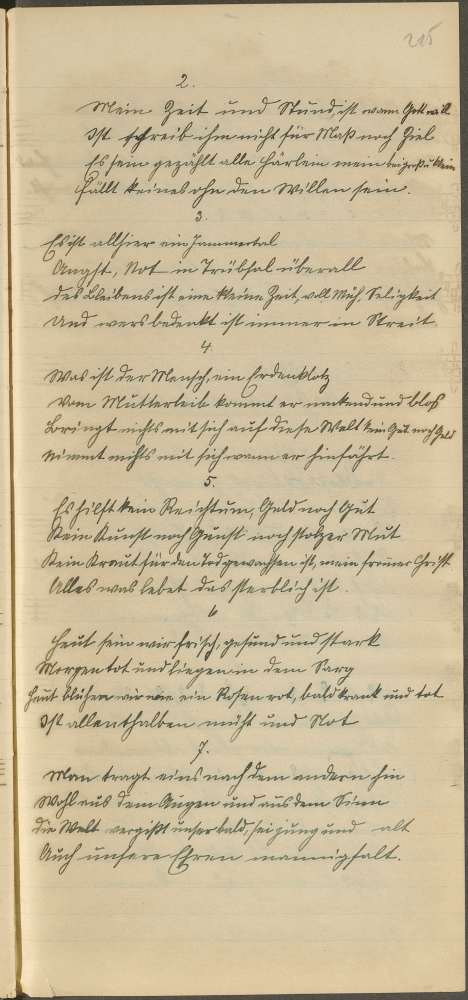 215
2.
Mein Zeit und Stund ist wann Gott will
Ist schreib ihm nicht für Maß noch Ziel
Es sein gezählt alle Härlein mein bei groß u klein
Fällt keines ohn den Willen sein.
3.
Es ist allhier ein Jammertal
Angst, Not in Trübsal überall
des Bleibens ist eine kleine Zeit, voll Müh, Seligkeit
und wers bedenkt ist immer in Streit.
4
Was ist der Mensch, ein Erdenklotz
Vom Mutterleib kommt er nackend und blos
Bringt nichts mit sich auf diese Welt kein Gut noch Geld
Nimmt nichts mit sich wann er hinfährt.
5.
Es hilft kein Reichtum, Geld noch Gut
Kein Kunst noch Gunst noch stolzer Mut
Kein Kraut für den Tod gewachsen ist, mein frommer Christ
Alles was lebet das sterblich ist.
6
Heut sein wir frisch, gesund und stark
Morgen tot und liegen in dem Sarg
Heut blühen wir wie ein Rosen rot, bald krank und tot
Ist allenthalben müht und Not
7.
Man tragt eins nach dem andern hin
Wohl aus dem Augen und aus dem Sinn
Die Welt vergißt unser bald, sei jung und alt
Auch unsere Ehren mannigfalt.